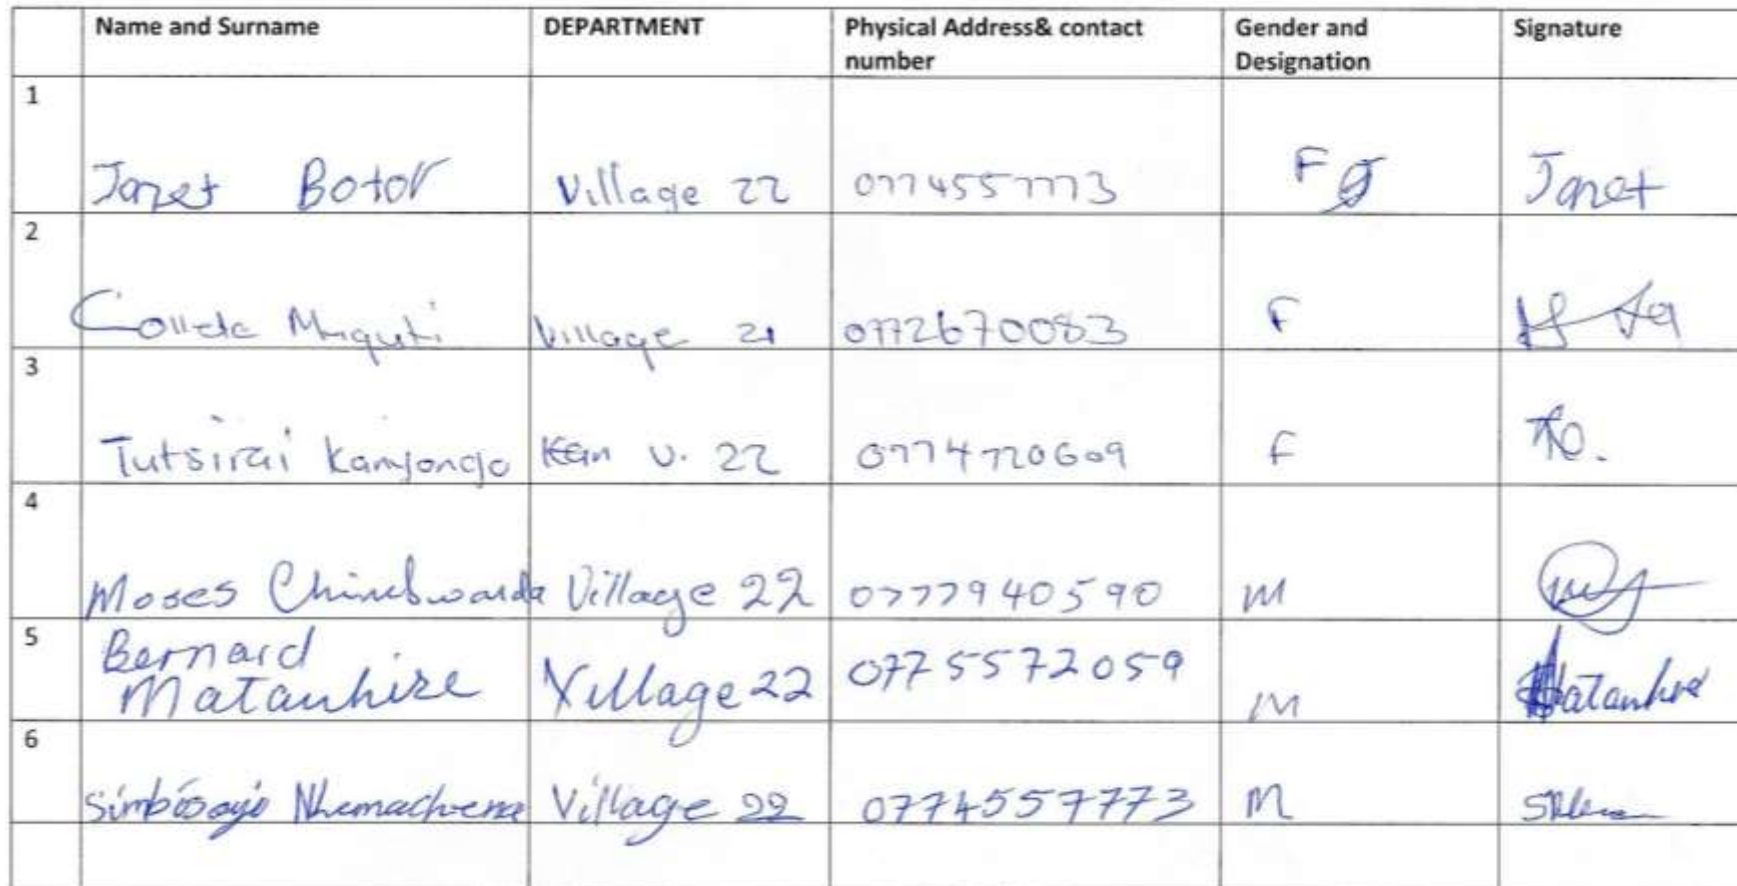 Name and Surname DEPARTMENT Physical Address& contact number Gender and Designation Signature
1 Janet Botor Village 22 0774557773 F Janet
2 Colleta Muguti Village 21 0772670083 F
3 Tutsirai Kamjongo v. 22 0774720609 F
4 Moses Village 22 0777940590 M
5 Bernard Matanhire Village 22 0775572059 M Matanhire
6 Village 22 0774557773 M